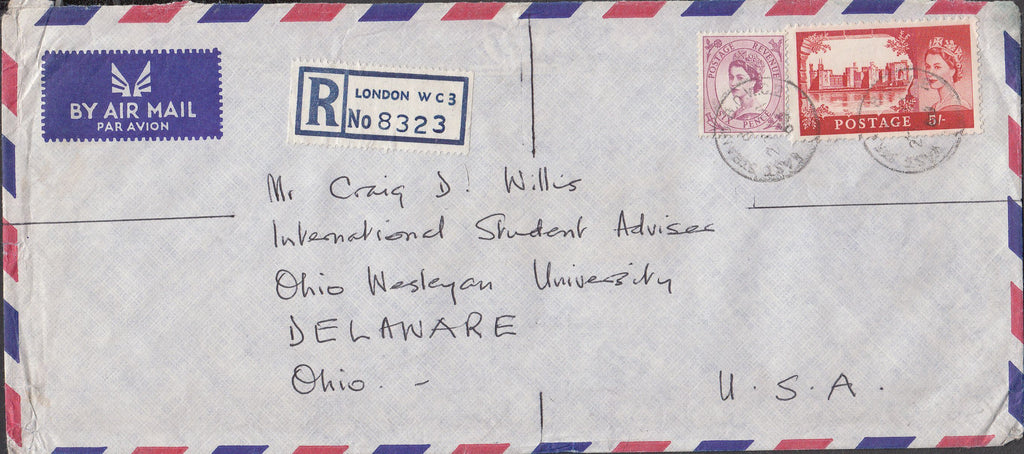 BY AIR MAIL
PAR AVION
R
LONDON W C 3
No 8323
POSTAGE REVENUE
PENCE
POSTAGE 5/-
Mr Craig D. Willis
International Student Adviser
Ohio Wesleyan University
DELAWARE
Ohio. -
U. S. A.